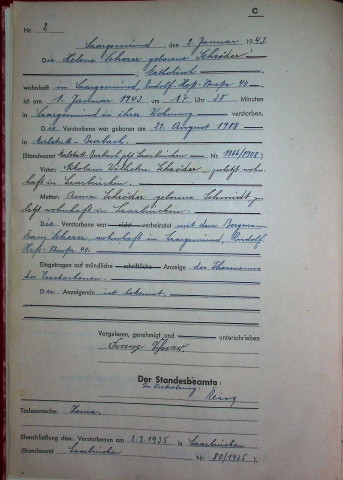 C
Nr. 2
Saargemünd, den 2. Januar 1943
Die Helene Scherer geborene Schröder,
katholisch
wohnhaft in Saargemünd, Rudolf-Heß-Straße 40
ist am 1. Januar 1943 um 17 Uhr 35 Minuten
in Saargemünd in ihrer Wohnung verstorben.
Die Verstorbene war geboren am 21. August 1908
in Malstatt-Burbach.
(Standesamt Malstatt-Burbach jetzt Saarbrücken Nr. 1966/1908)
Vater: Nikolaus Wilhelm Schröder, zuletzt wohn-
haft in Saarbrücken.
Mutter: Anna Schröder geborene Schmidt, zu-
letzt wohnhaft in Saarbrücken.
Die Verstorbene war nicht verheiratet mit dem Bergmann
Franz Scherer, wohnhaft in Saargemünd, Rudolf-
Heß-Straße 40.
Eingetragen auf mündliche schriftliche Anzeige des Ehemannes
der Verstorbenen.
Der Anzeigende ist bekannt.
Vorgelesen, genehmigt und unterschrieben
Franz Scherer
Der Standesbeamte:
In Vertretung:
Todesursache:
Eheschließung der Verstorbenen am 2.2.1935 in Saarbrücken
(Standesamt Saarbrücken Nr. 80/1935).